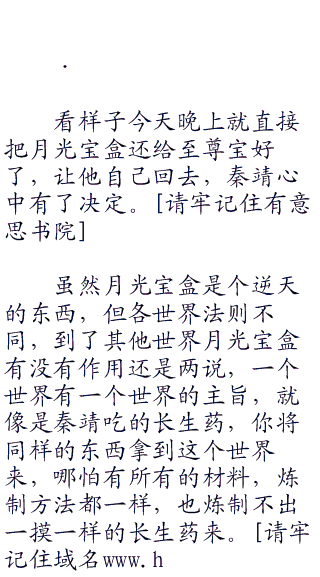 .
看样子今天晚上就直接
把月光宝盒还给至尊宝好
了，让他自己回去，秦靖心
中有了决定。[请牢记住有意
思书院]
虽然月光宝盒是个逆天
的东西，但各世界法则不
同，到了其他世界月光宝盒
有没有作用还是两说，一个
世界有一个世界的主旨，就
像是秦靖吃的长生药，你将
同样的东西拿到这个世界
来，哪怕有所有的材料，炼
制方法都一样，也炼制不出
一摸一样的长生药来。[请牢
记住域名www.h